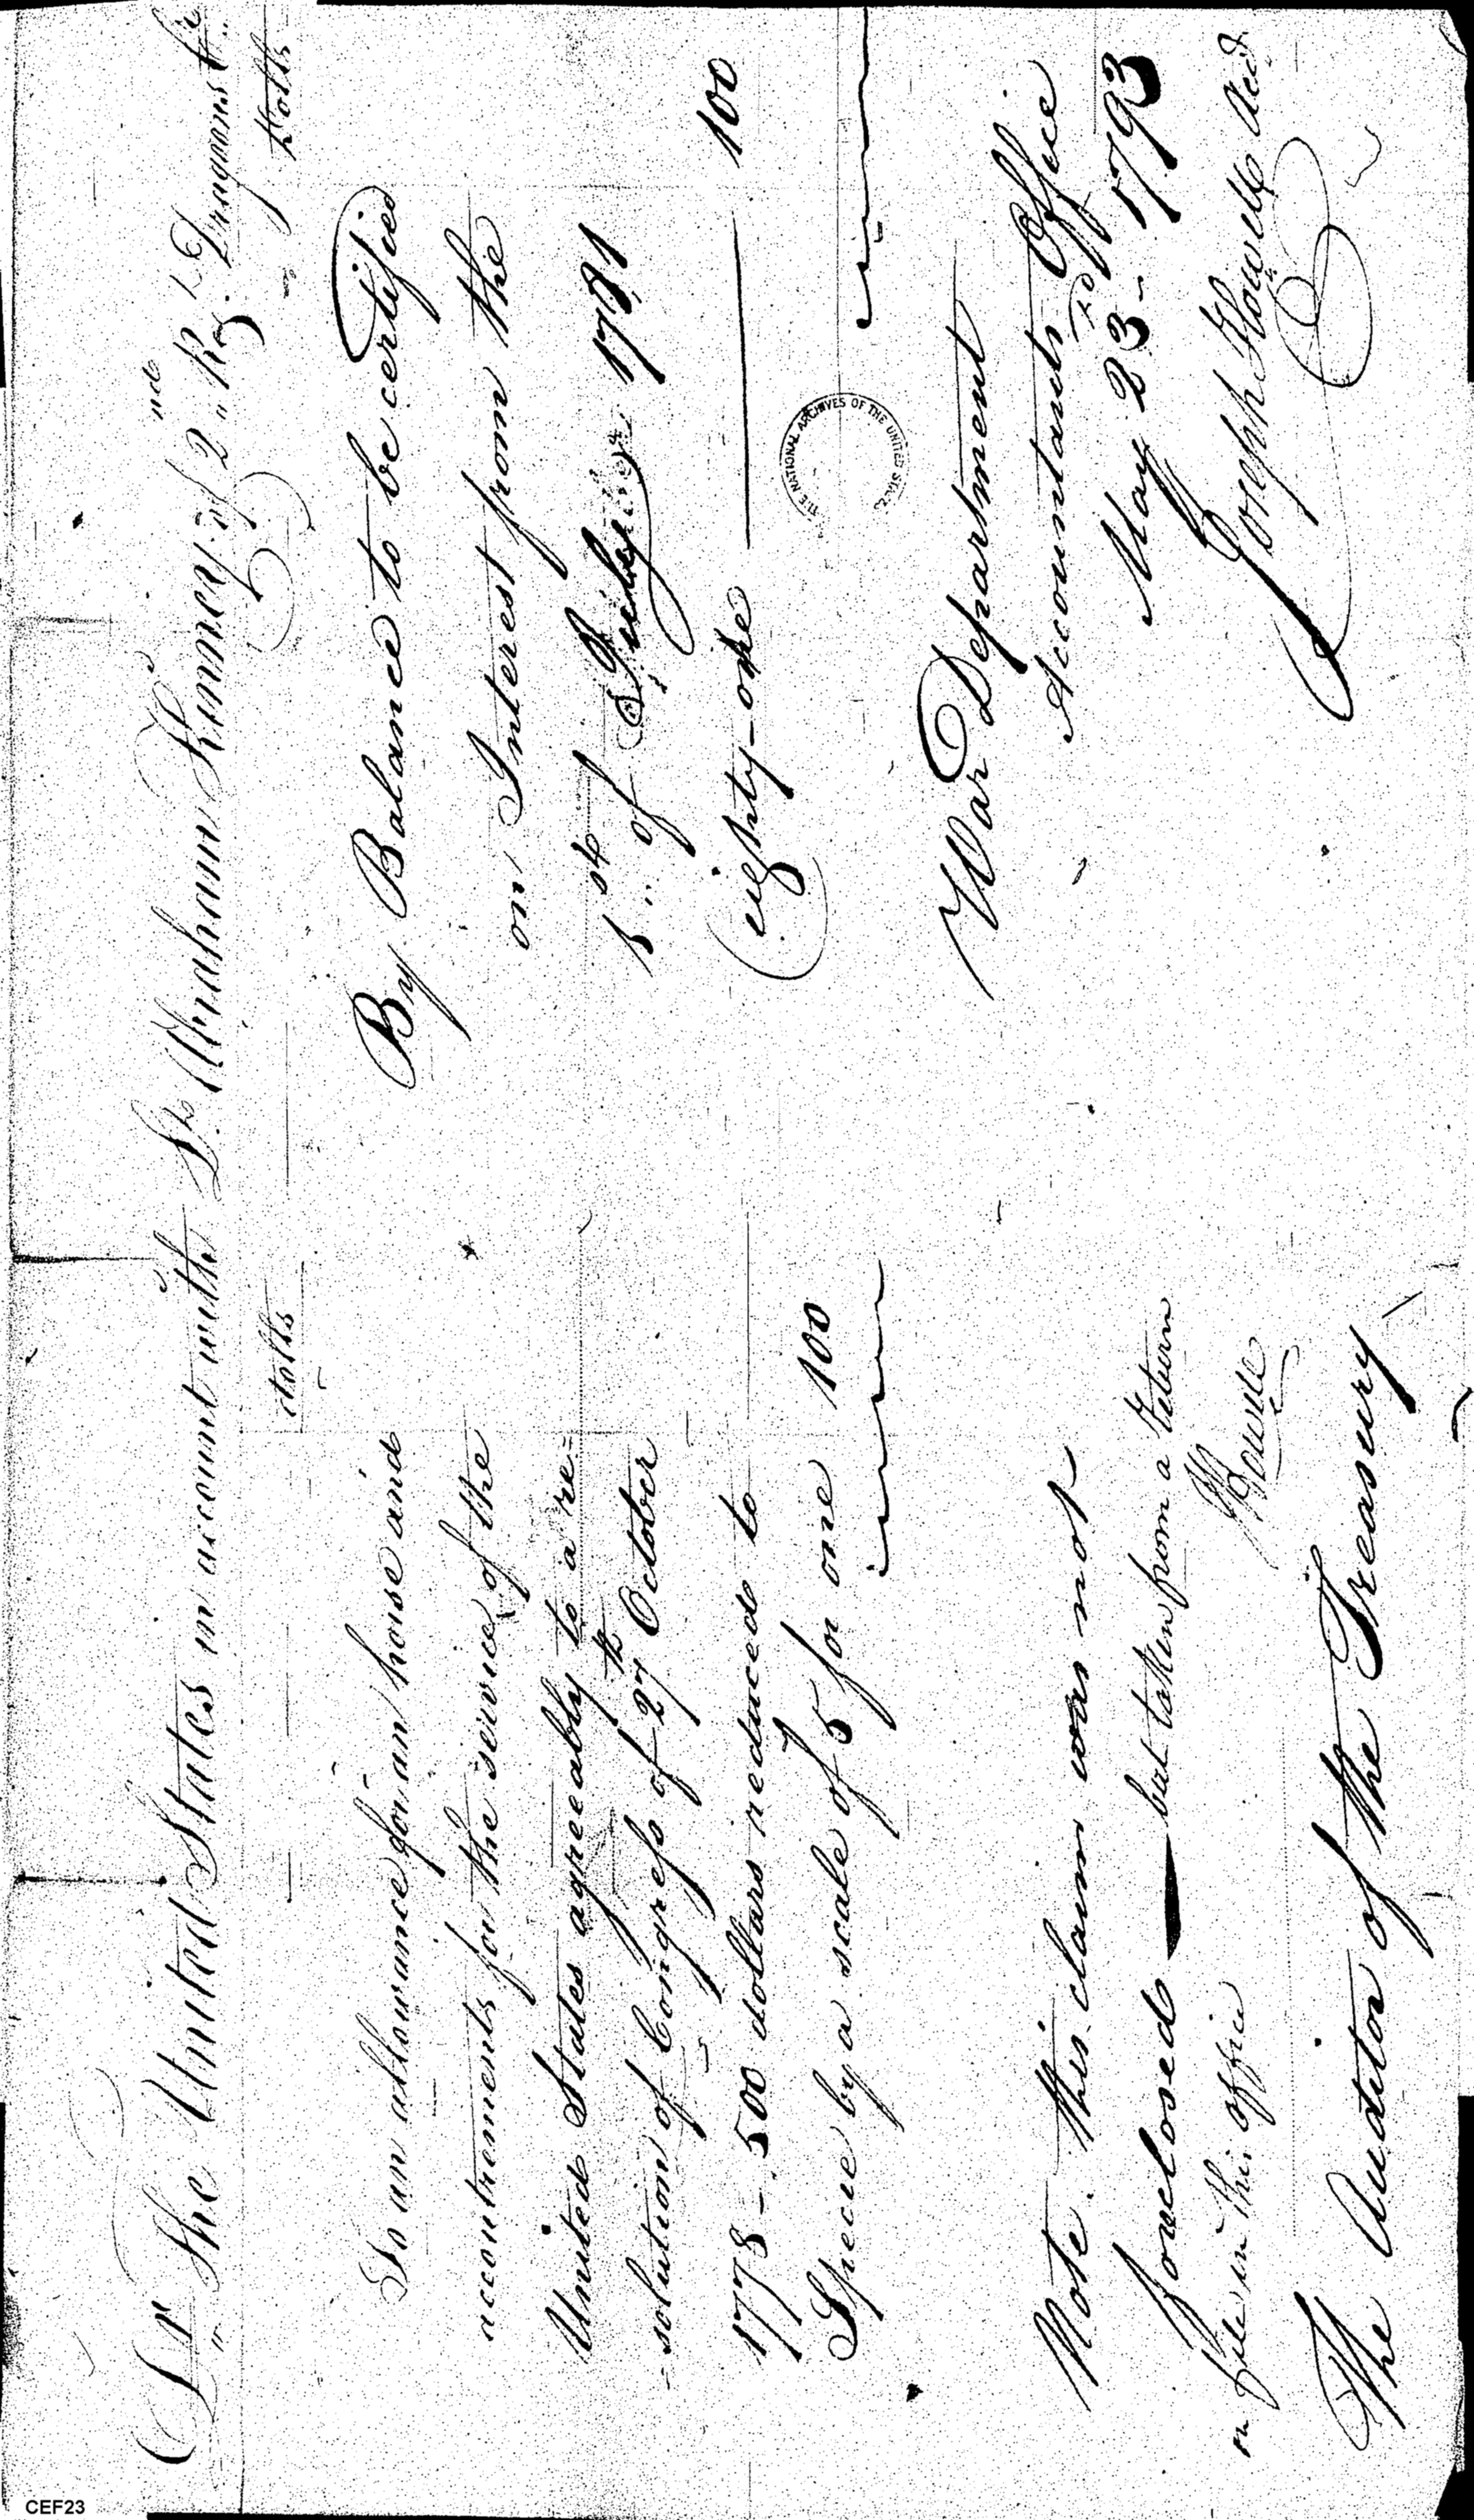 Dr. The United States in account with Lt. Abraham Kinney of 2nd Reg. Lt Dragoons Cr.
dolls
Dolls
To an allowance for an horse and
accoutrements for the service of the
United States agreeably to a re-
-solution of Congress of 27th October
1778 - 500 dollars reduced to
Specie by a scale of 5 for one 100
By Balance to be certified
on Interest from the
1st of July 1781
eighty-one 100
Note. this claim was not
foreclosed — but taken from a return
on file in this office
JHowell
The Auditor of the Treasury
War Department
Accountants Office
May 23rd 1793
Joseph Howell Acct
THE NATIONAL ARCHIVES OF THE UNITED STATES
CEF23